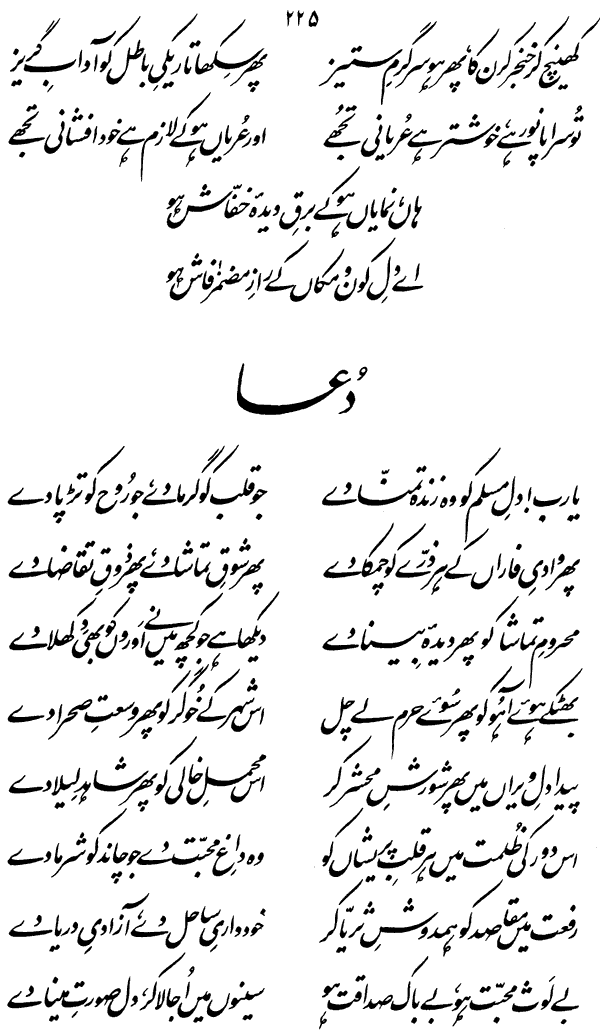 ۲۲۵
کھینچ کر خنجر کرن کا، پھر ہو سرگرمِ ستیز پھر سکھا تاریکیِ باطل کو آدابِ گریز
تُو سراپا نور ہے، خوشتر ہے عُریانی تجھے اور عُریاں ہو کے لازم ہے خود افشانی تجھے
ہاں، نمایاں ہو کے برقِ دیدۂ خفّاش ہو
اے دلِ کون و مکاں کے رازِ مضمر! فاش ہو
دُعا
یارب! دلِ مسلم کو وہ زندہ تمنّا دے جو قلب کو گرما دے، جو رُوح کو تڑپا دے
پھر وادیِ فاراں کے ہر ذرّے کو چمکا دے پھر شوقِ تماشا دے، پھر ذوقِ تقاضا دے
محرومِ تماشا کو پھر دیدۂ بینا دے دیکھا ہے جو کچھ میں نے اَوروں کو بھی دِکھلا دے
بھٹکے ہوئے آہُو کو پھر سُوئے حرم لے چل اس شہر کے خُوگر کو پھر وسعتِ صحرا دے
پیدا دلِ ویراں میں پھر شورشِ محشر کر اس محملِ خالی کو پھر شاہدِ لیلا دے
اس دور کی ظُلمت میں ہر قلبِ پریشاں کو وہ داغِ محبّت دے جو چاند کو شرما دے
رفعت میں مقاصد کو ہمدوشِ ثریّا کر خودداریِ ساحل دے، آزادیِ دریا دے
بے لَوث محبّت ہو، بے باک صداقت ہو سینوں میں اُجالا کر، دل صورتِ مینا دے